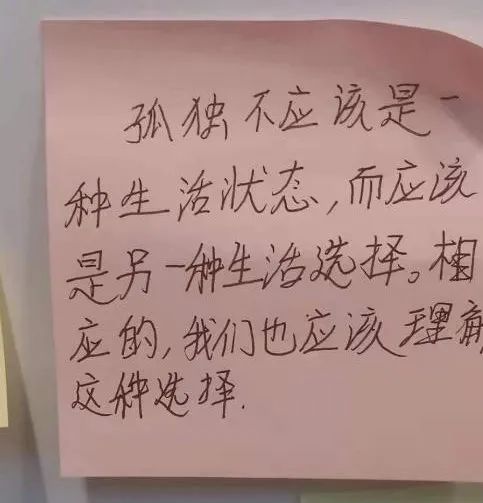 孤独不应该是一
种生活状态,而应该
是另一种生活选择。相
应的,我们也应该理解
这种选择.